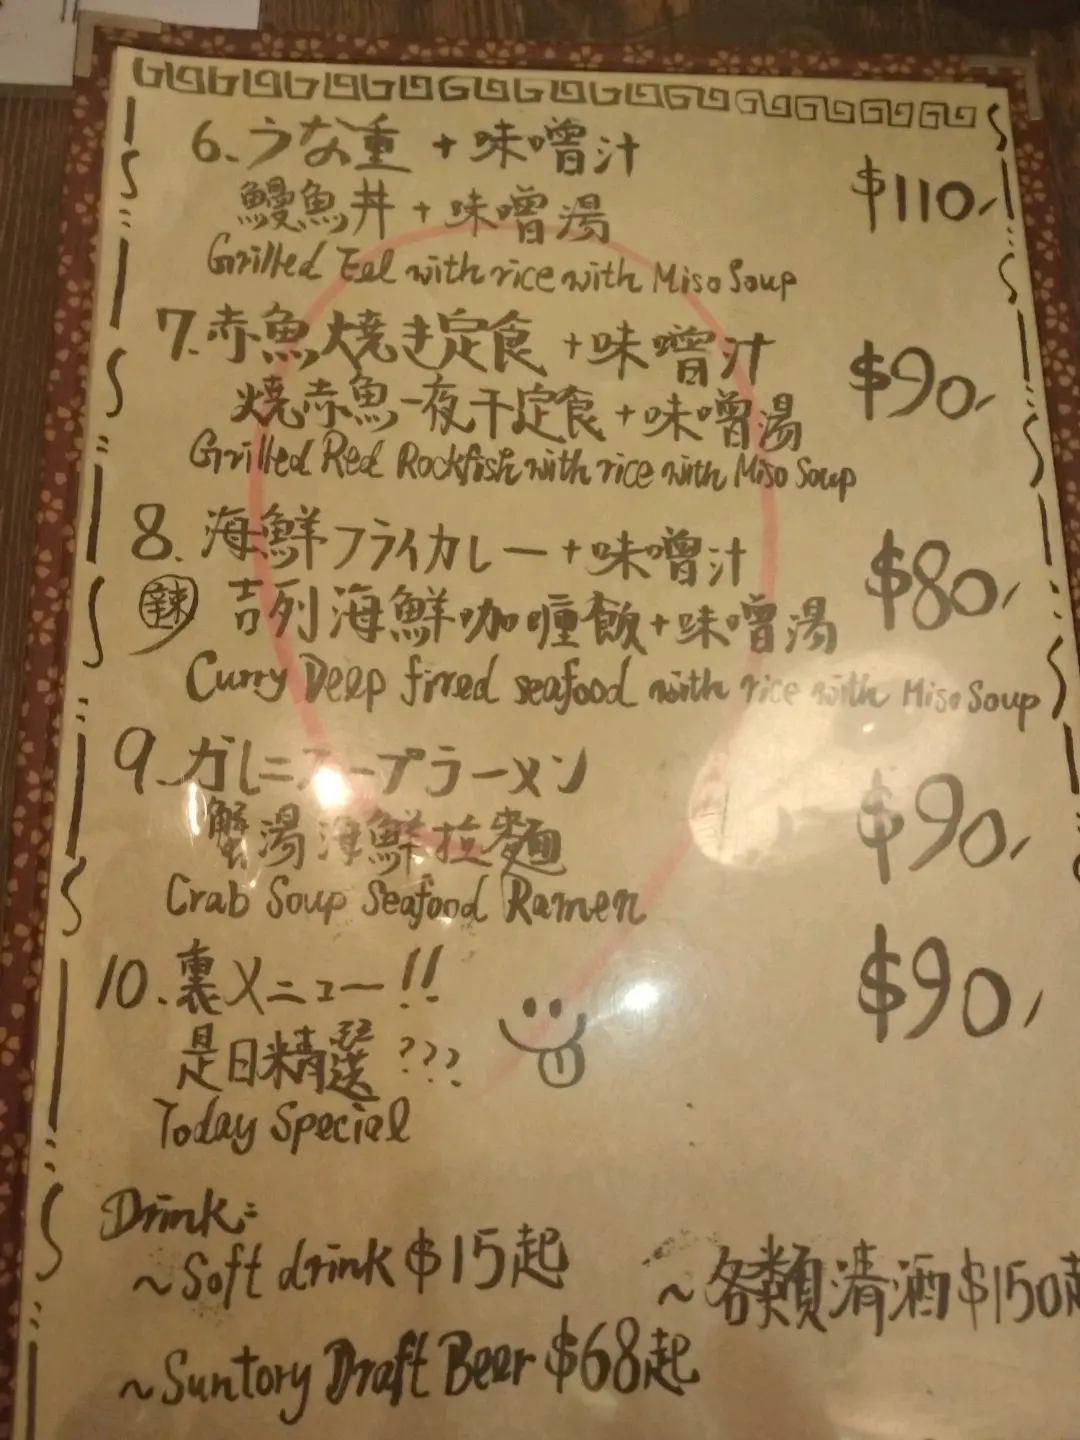 6. うな重 + 味噌汁
$110/
鰻魚丼 + 味噌湯
Grilled Eel with rice with Miso Soup
7. 赤魚焼き定食 + 味噌汁
$90/
燒赤魚一夜干定食 + 味噌湯
Grilled Red Rockfish with rice with Miso Soup
8. 海鮮フライカレー + 味噌汁
$80/
辣 吉列海鮮咖喱飯 + 味噌湯
Curry Deep firred seafood with rice with Miso Soup
9. がに スープラーメン
$90/
蟹湯海鮮拉麵
Crab Soup Seafood Ramen
10. 裏メニュー!!
$90/
是日精選 ???
Today Special
Drink:
~Soft drink $15起
~各類清酒 $150起
~Suntory Draft Beer $68起